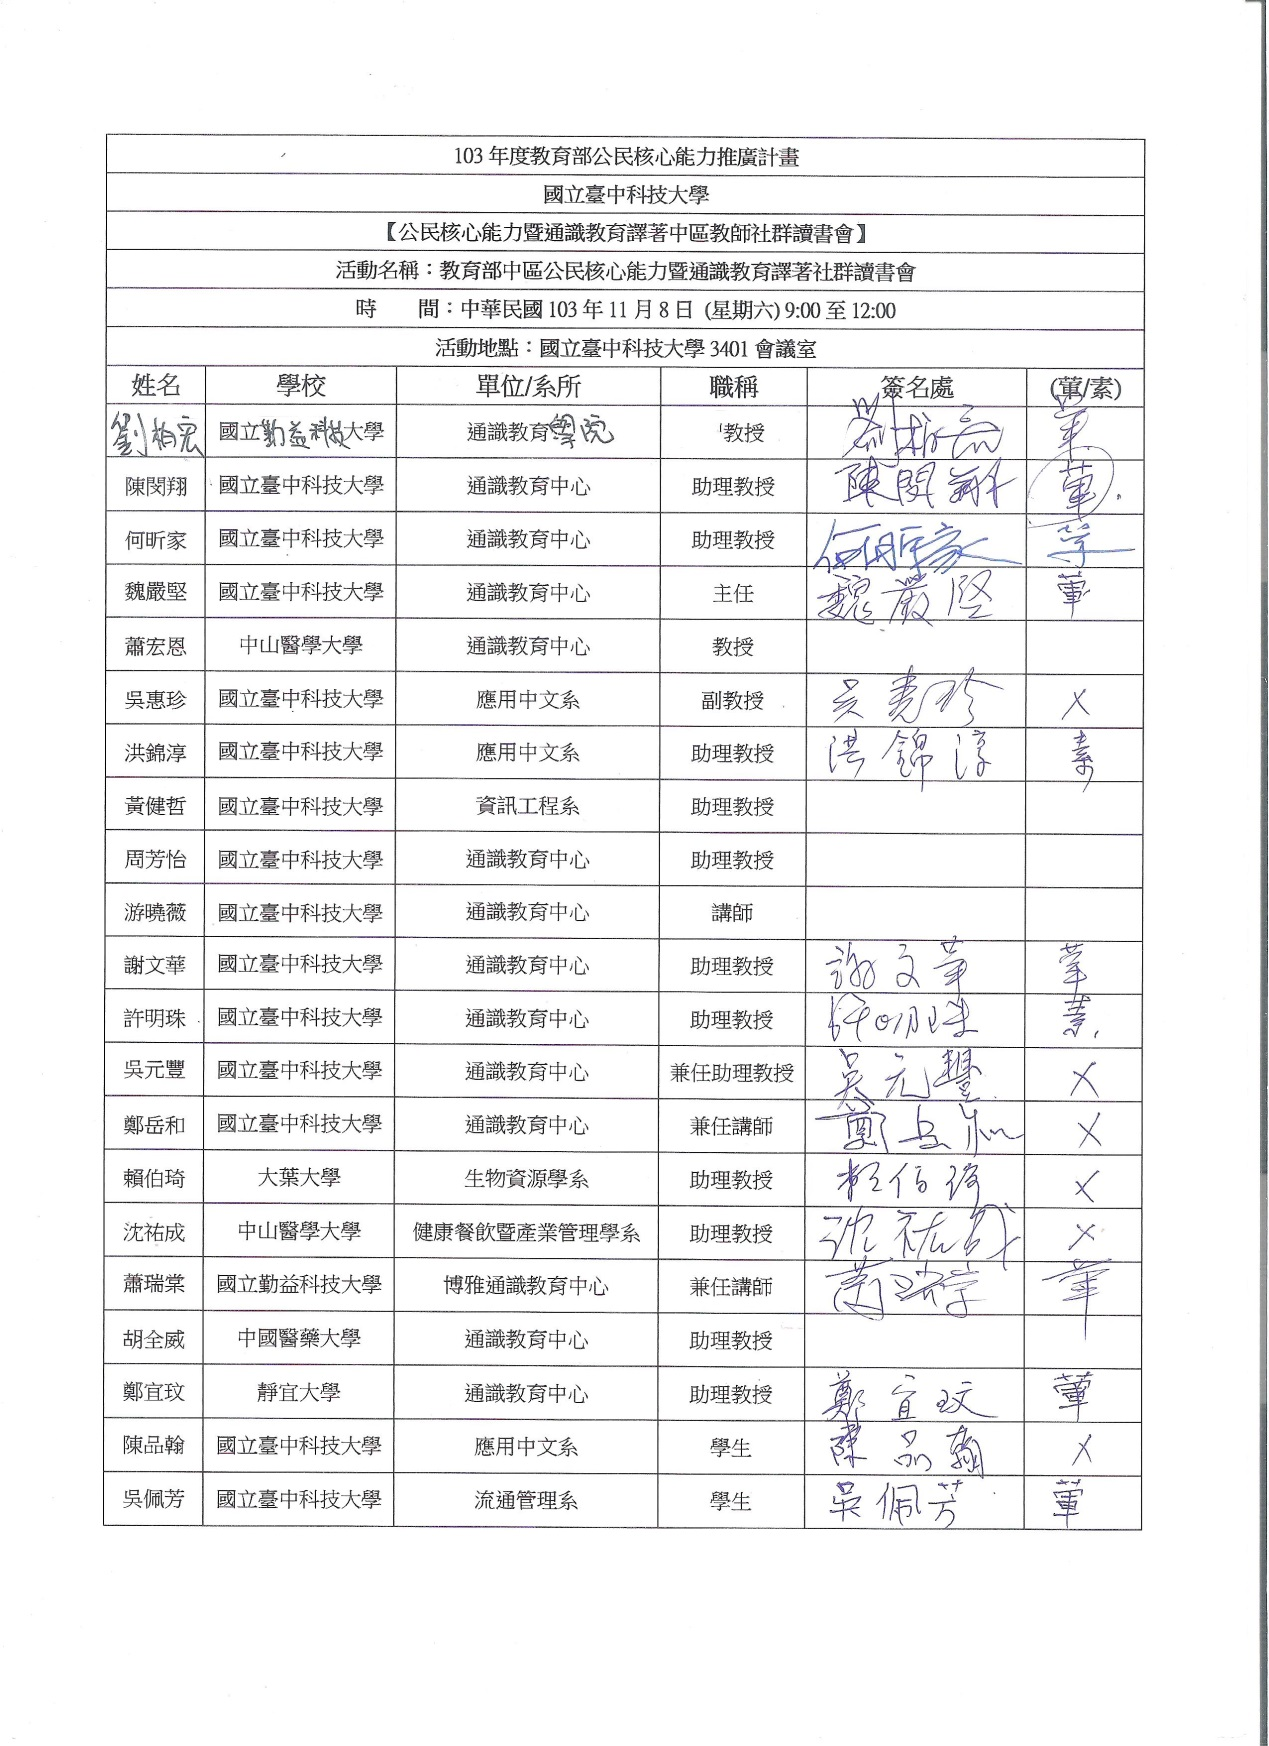 103 年度教育部公民核心能力推廣計畫
國立臺中科技大學
【公民核心能力暨通識教育譯著中區教師社群讀書會】
活動名稱：教育部中區公民核心能力暨通識教育譯著社群讀書會
時　　間：中華民國 103 年 11 月 8 日 (星期六) 9:00 至 12:00
活動地點：國立臺中科技大學 3401 會議室
姓名 學校 單位/系所 職稱 簽名處 (葷/素)
劉柏宏 國立勤益科技大學 通識教育學院 教授 劉柏宏
陳閔翔 國立臺中科技大學 通識教育中心 助理教授 陳閔翔 葷
何昕家 國立臺中科技大學 通識教育中心 助理教授 何昕家 葷
魏嚴堅 國立臺中科技大學 通識教育中心 主任 魏嚴堅 葷
蕭宏恩 中山醫學大學 通識教育中心 教授
吳惠珍 國立臺中科技大學 應用中文系 副教授 吳惠珍 X
洪錦淳 國立臺中科技大學 應用中文系 助理教授 洪錦淳 素
黃健哲 國立臺中科技大學 資訊工程系 助理教授
周芳怡 國立臺中科技大學 通識教育中心 助理教授
游曉薇 國立臺中科技大學 通識教育中心 講師
謝文華 國立臺中科技大學 通識教育中心 助理教授 謝文華 葷
許明珠 國立臺中科技大學 通識教育中心 助理教授 許明珠
吳元豐 國立臺中科技大學 通識教育中心 兼任助理教授 吳元豐 X
鄭岳和 國立臺中科技大學 通識教育中心 兼任講師 鄭岳和 X
賴伯琦 大葉大學 生物資源學系 助理教授 賴伯琦 X
沈祐成 中山醫學大學 健康餐飲暨產業管理學系 助理教授 沈祐成 X
蕭瑞棠 國立勤益科技大學 博雅通識教育中心 兼任講師 蕭瑞棠 葷
胡全威 中國醫藥大學 通識教育中心 助理教授
鄭宜玟 靜宜大學 通識教育中心 助理教授 鄭宜玟 葷
陳品翰 國立臺中科技大學 應用中文系 學生 陳品翰 X
吳佩芳 國立臺中科技大學 流通管理系 學生 吳佩芳 葷